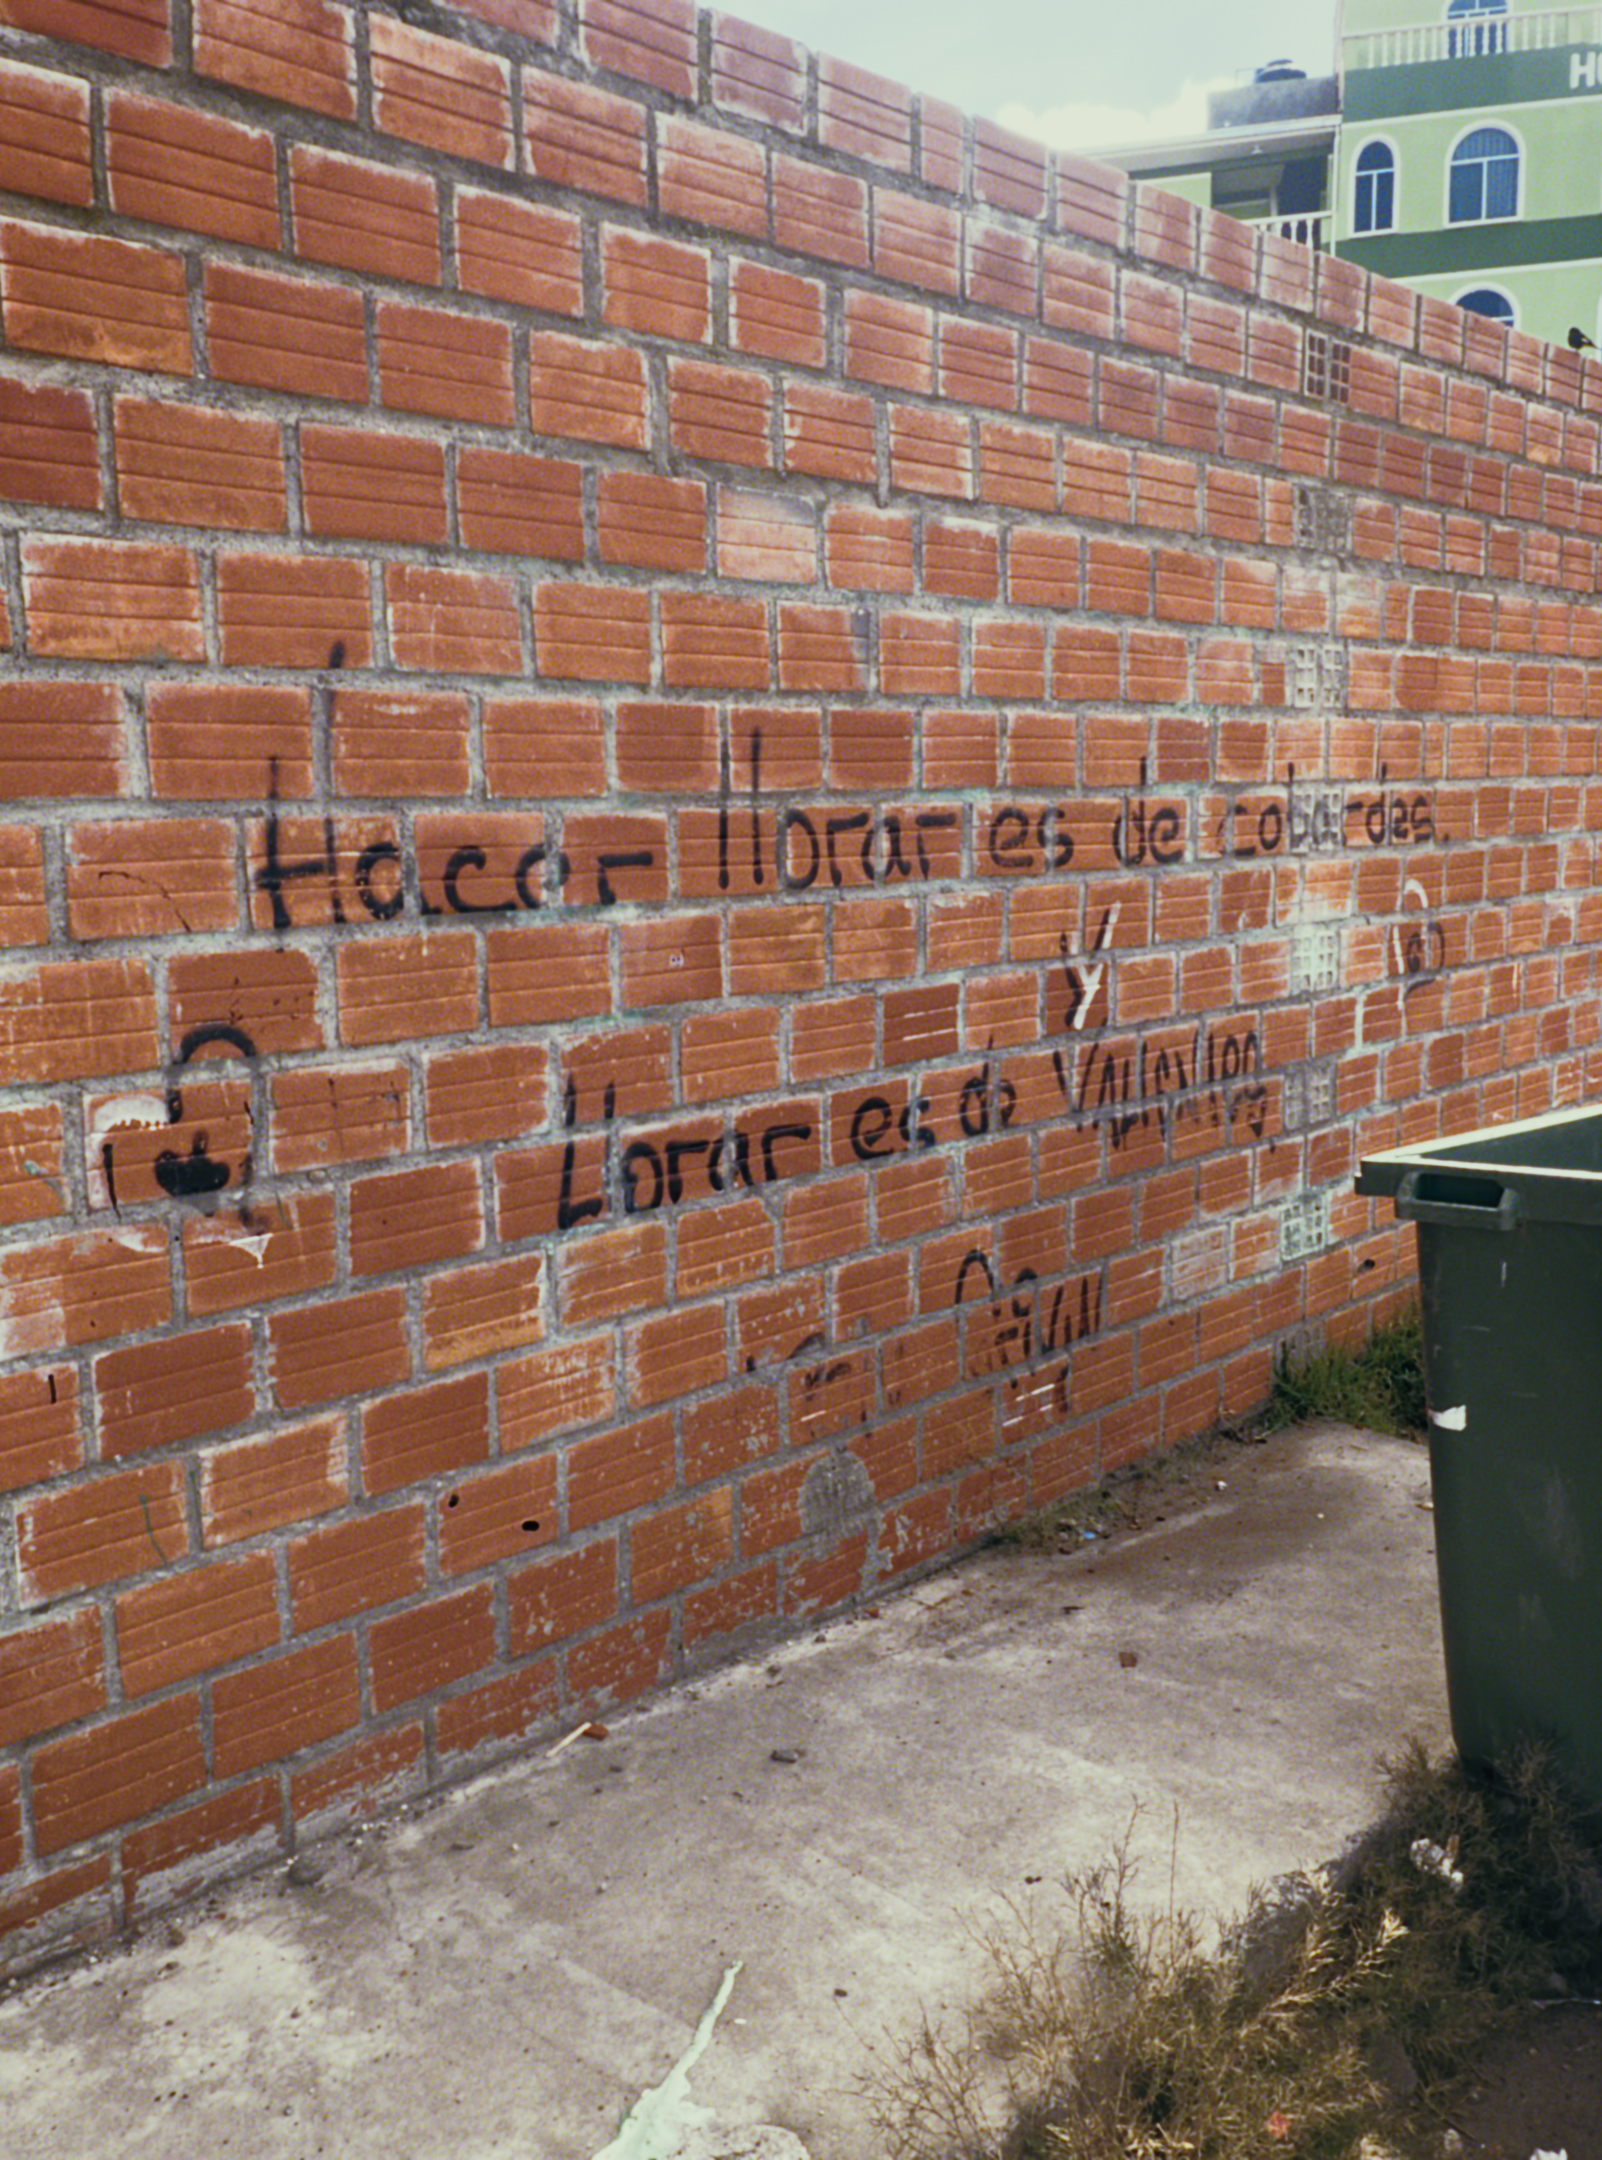 Hacer llorar es de cobardes.
Y
Llorar es de VALIENTES